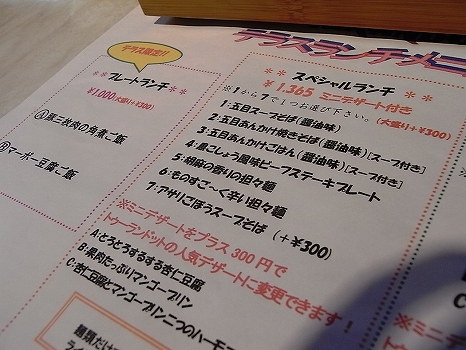 テラスランチメニ
テラス限定!!
**プレートランチ**
¥1,000(大盛り+¥300)
Ⓐ豚三枚肉の角煮ご飯
Ⓑマーボー豆腐ご飯
** スペシャルランチ **
¥1,365 ミニデザート付き
※1から7で1つお選び下さい。(大盛り+¥300)
1:五目スープそば(醤油味)
2:五目あんかけ焼きそば(醤油味)
3:五目あんかけごはん(醤油味)[スープ付き]
4:黒こしょう風味ビーフステーキプレート[スープ付き]
5:胡麻の香りの担々麺
6:ものすごーく辛い担々麺
7:アサリごぼうスープそば (+¥300)
※ミニデザートをプラス300円で
トゥーランドットの人気デザートに変更できます!
A:とろとろするする杏仁豆腐
B:果肉たっぷりマンゴープリン
C:杏仁豆腐とマンゴープリン二つのハーモ
麺類だけ
※ミニデ
トゥーラ